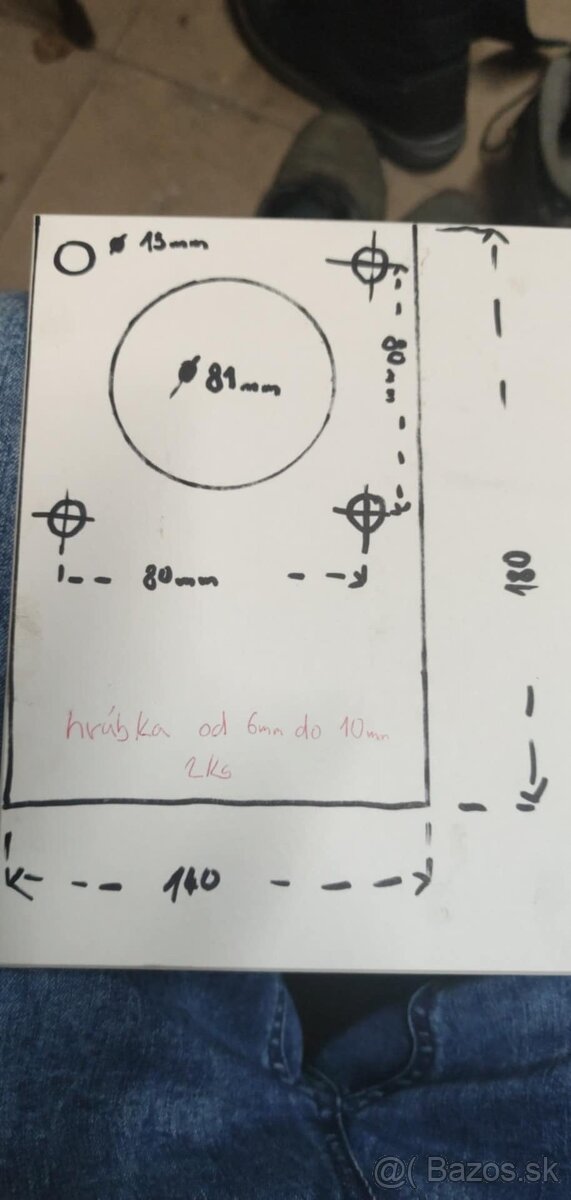 ø 13mm
ø 81mm
80mm
80mm
180
hrúbka od 6mm do 10mm
2ks
140
@( Bazos.sk